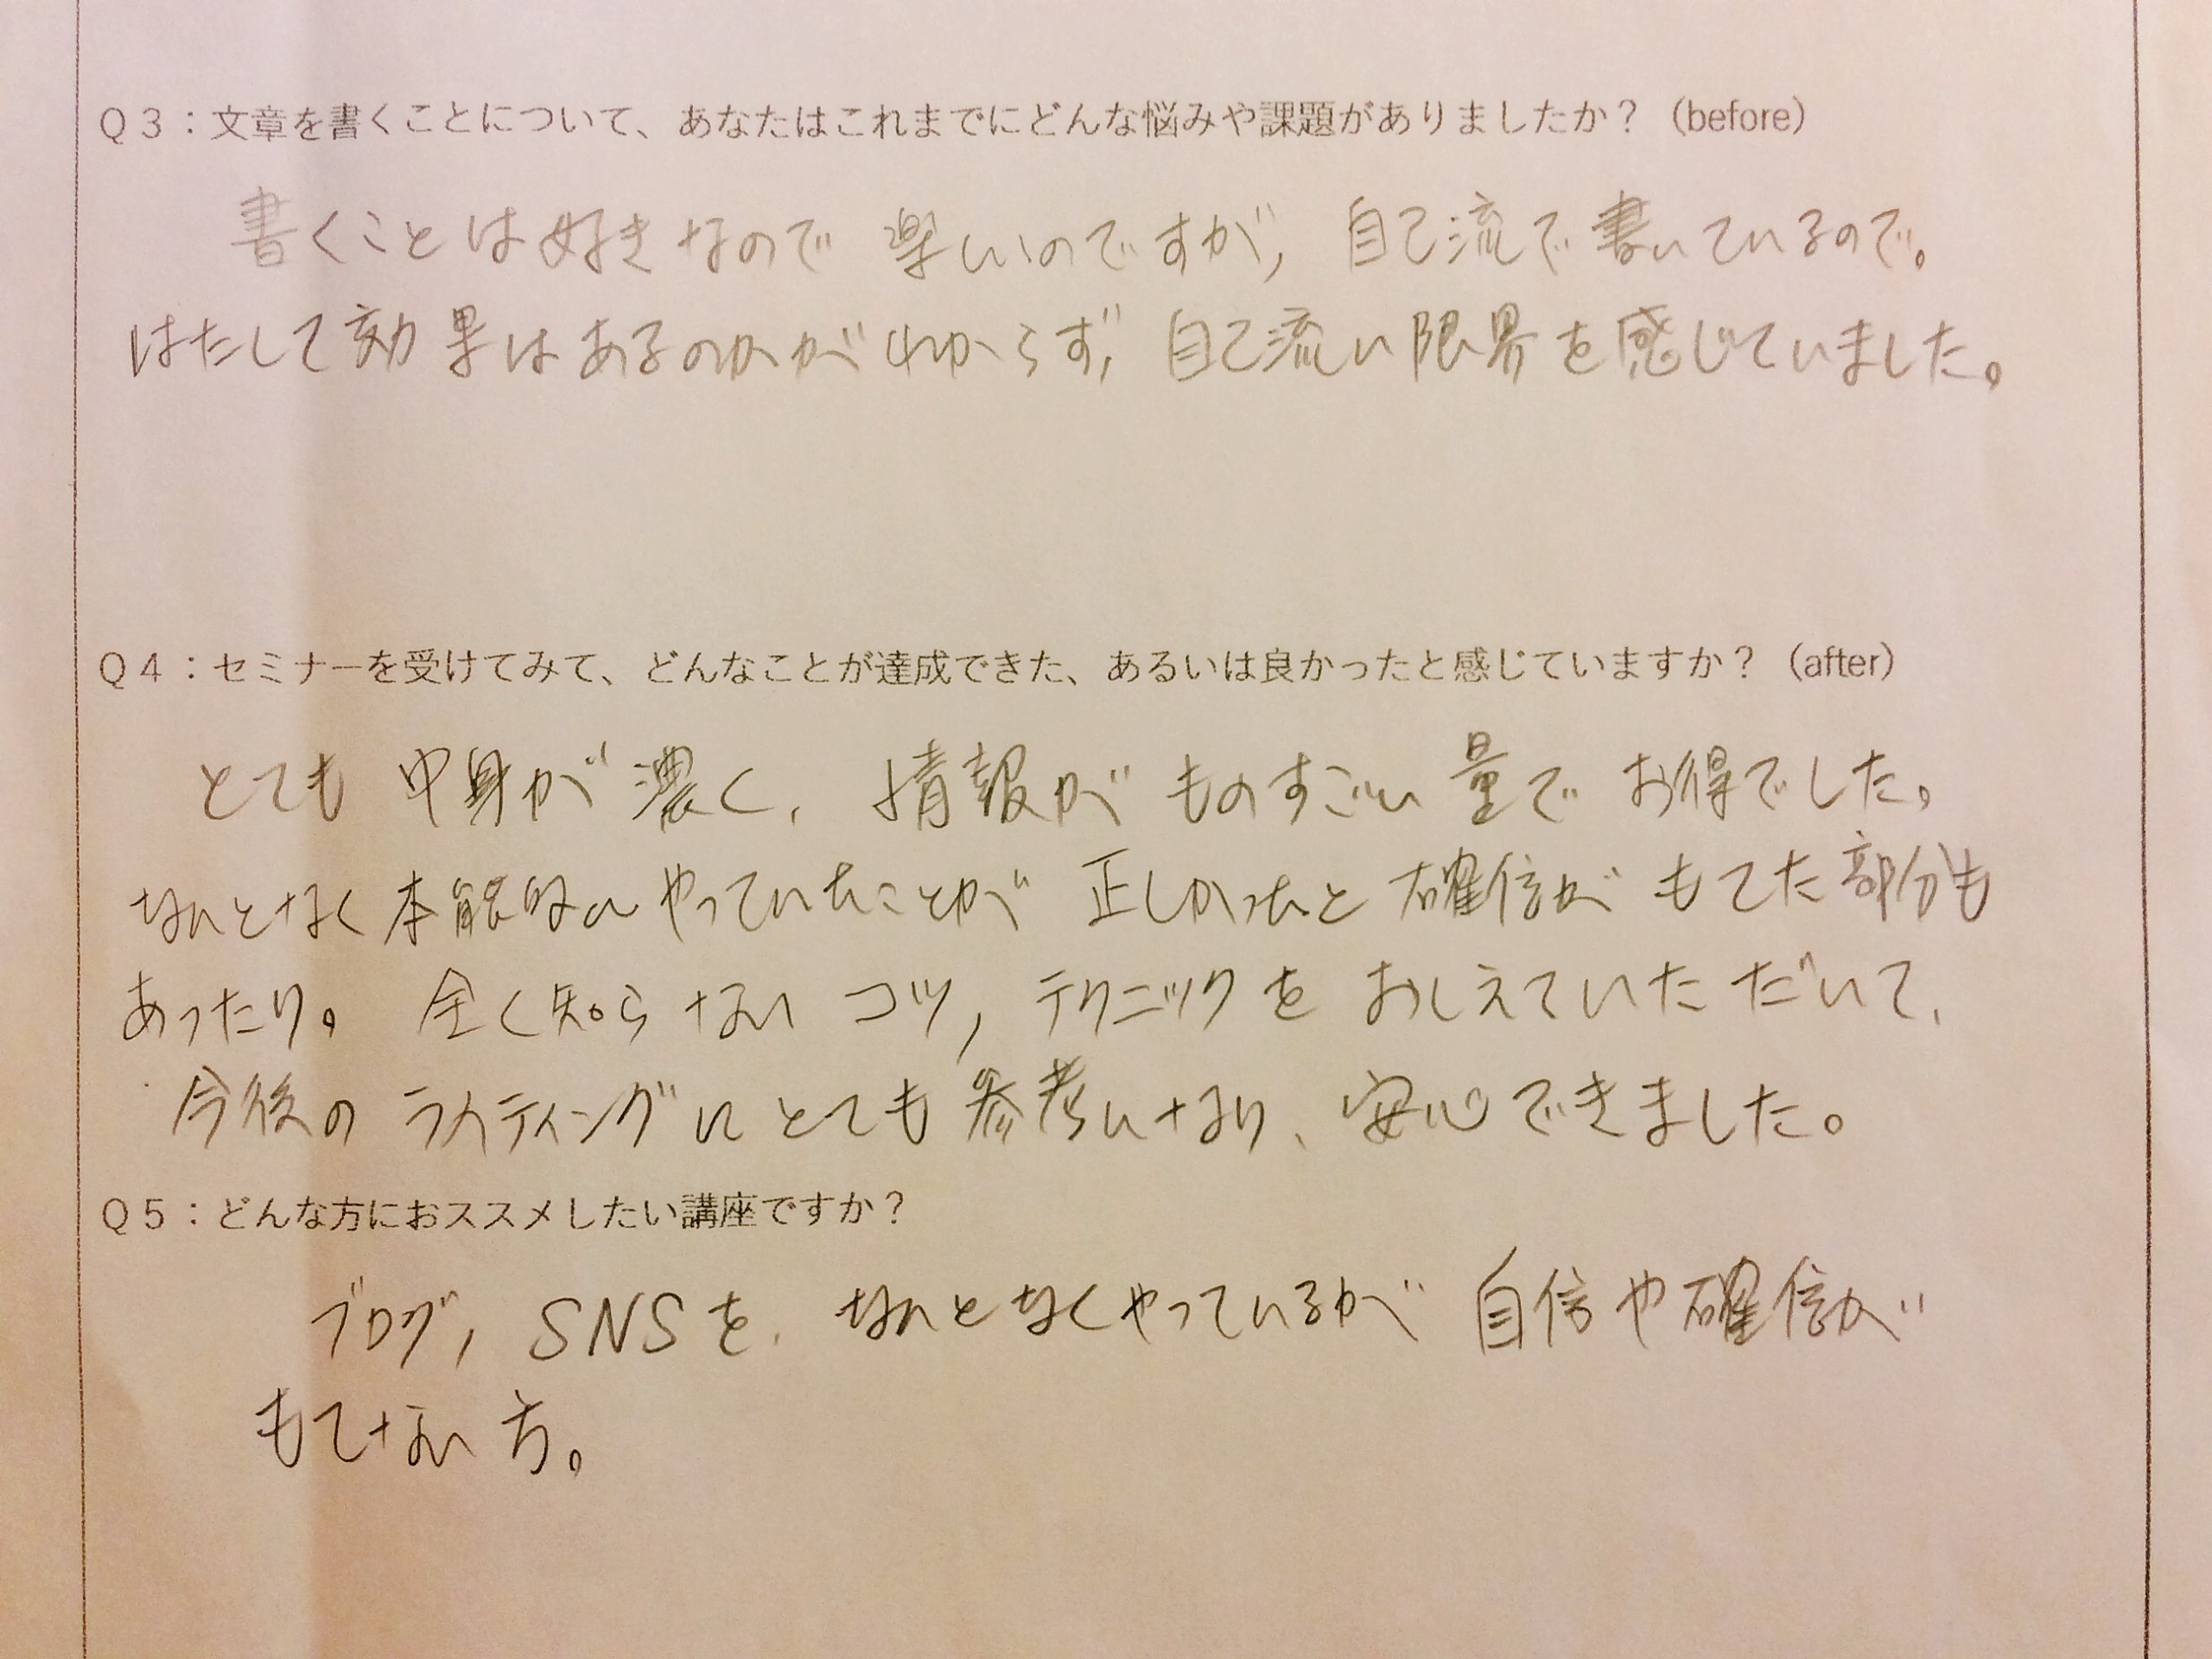 Q3：文章を書くことについて、あなたはこれまでにどんな悩みや課題がありましたか？（before）
書くことは好きなので 楽しいのですが, 自己流で書いているので。
はたして効果はあるのかがわからず, 自己流に限界を感じていました。
Q4：セミナーを受けてみて、どんなことが達成できた、あるいは良かったと感じていますか？（after）
とても 中身が濃く、情報が ものすごい量で お得でした。
なんとなく本能的に やっていたことが 正しかったと 確信が もてた部分も
あったり。 全く知らない コツ, テクニックを おしえていただいて、
今後の ライティングに とても参考になり、安心できました。
Q5：どんな方におススメしたい講座ですか？
ブログ, SNSを、なんとなくやっているが 自信や確信が
もてない方。